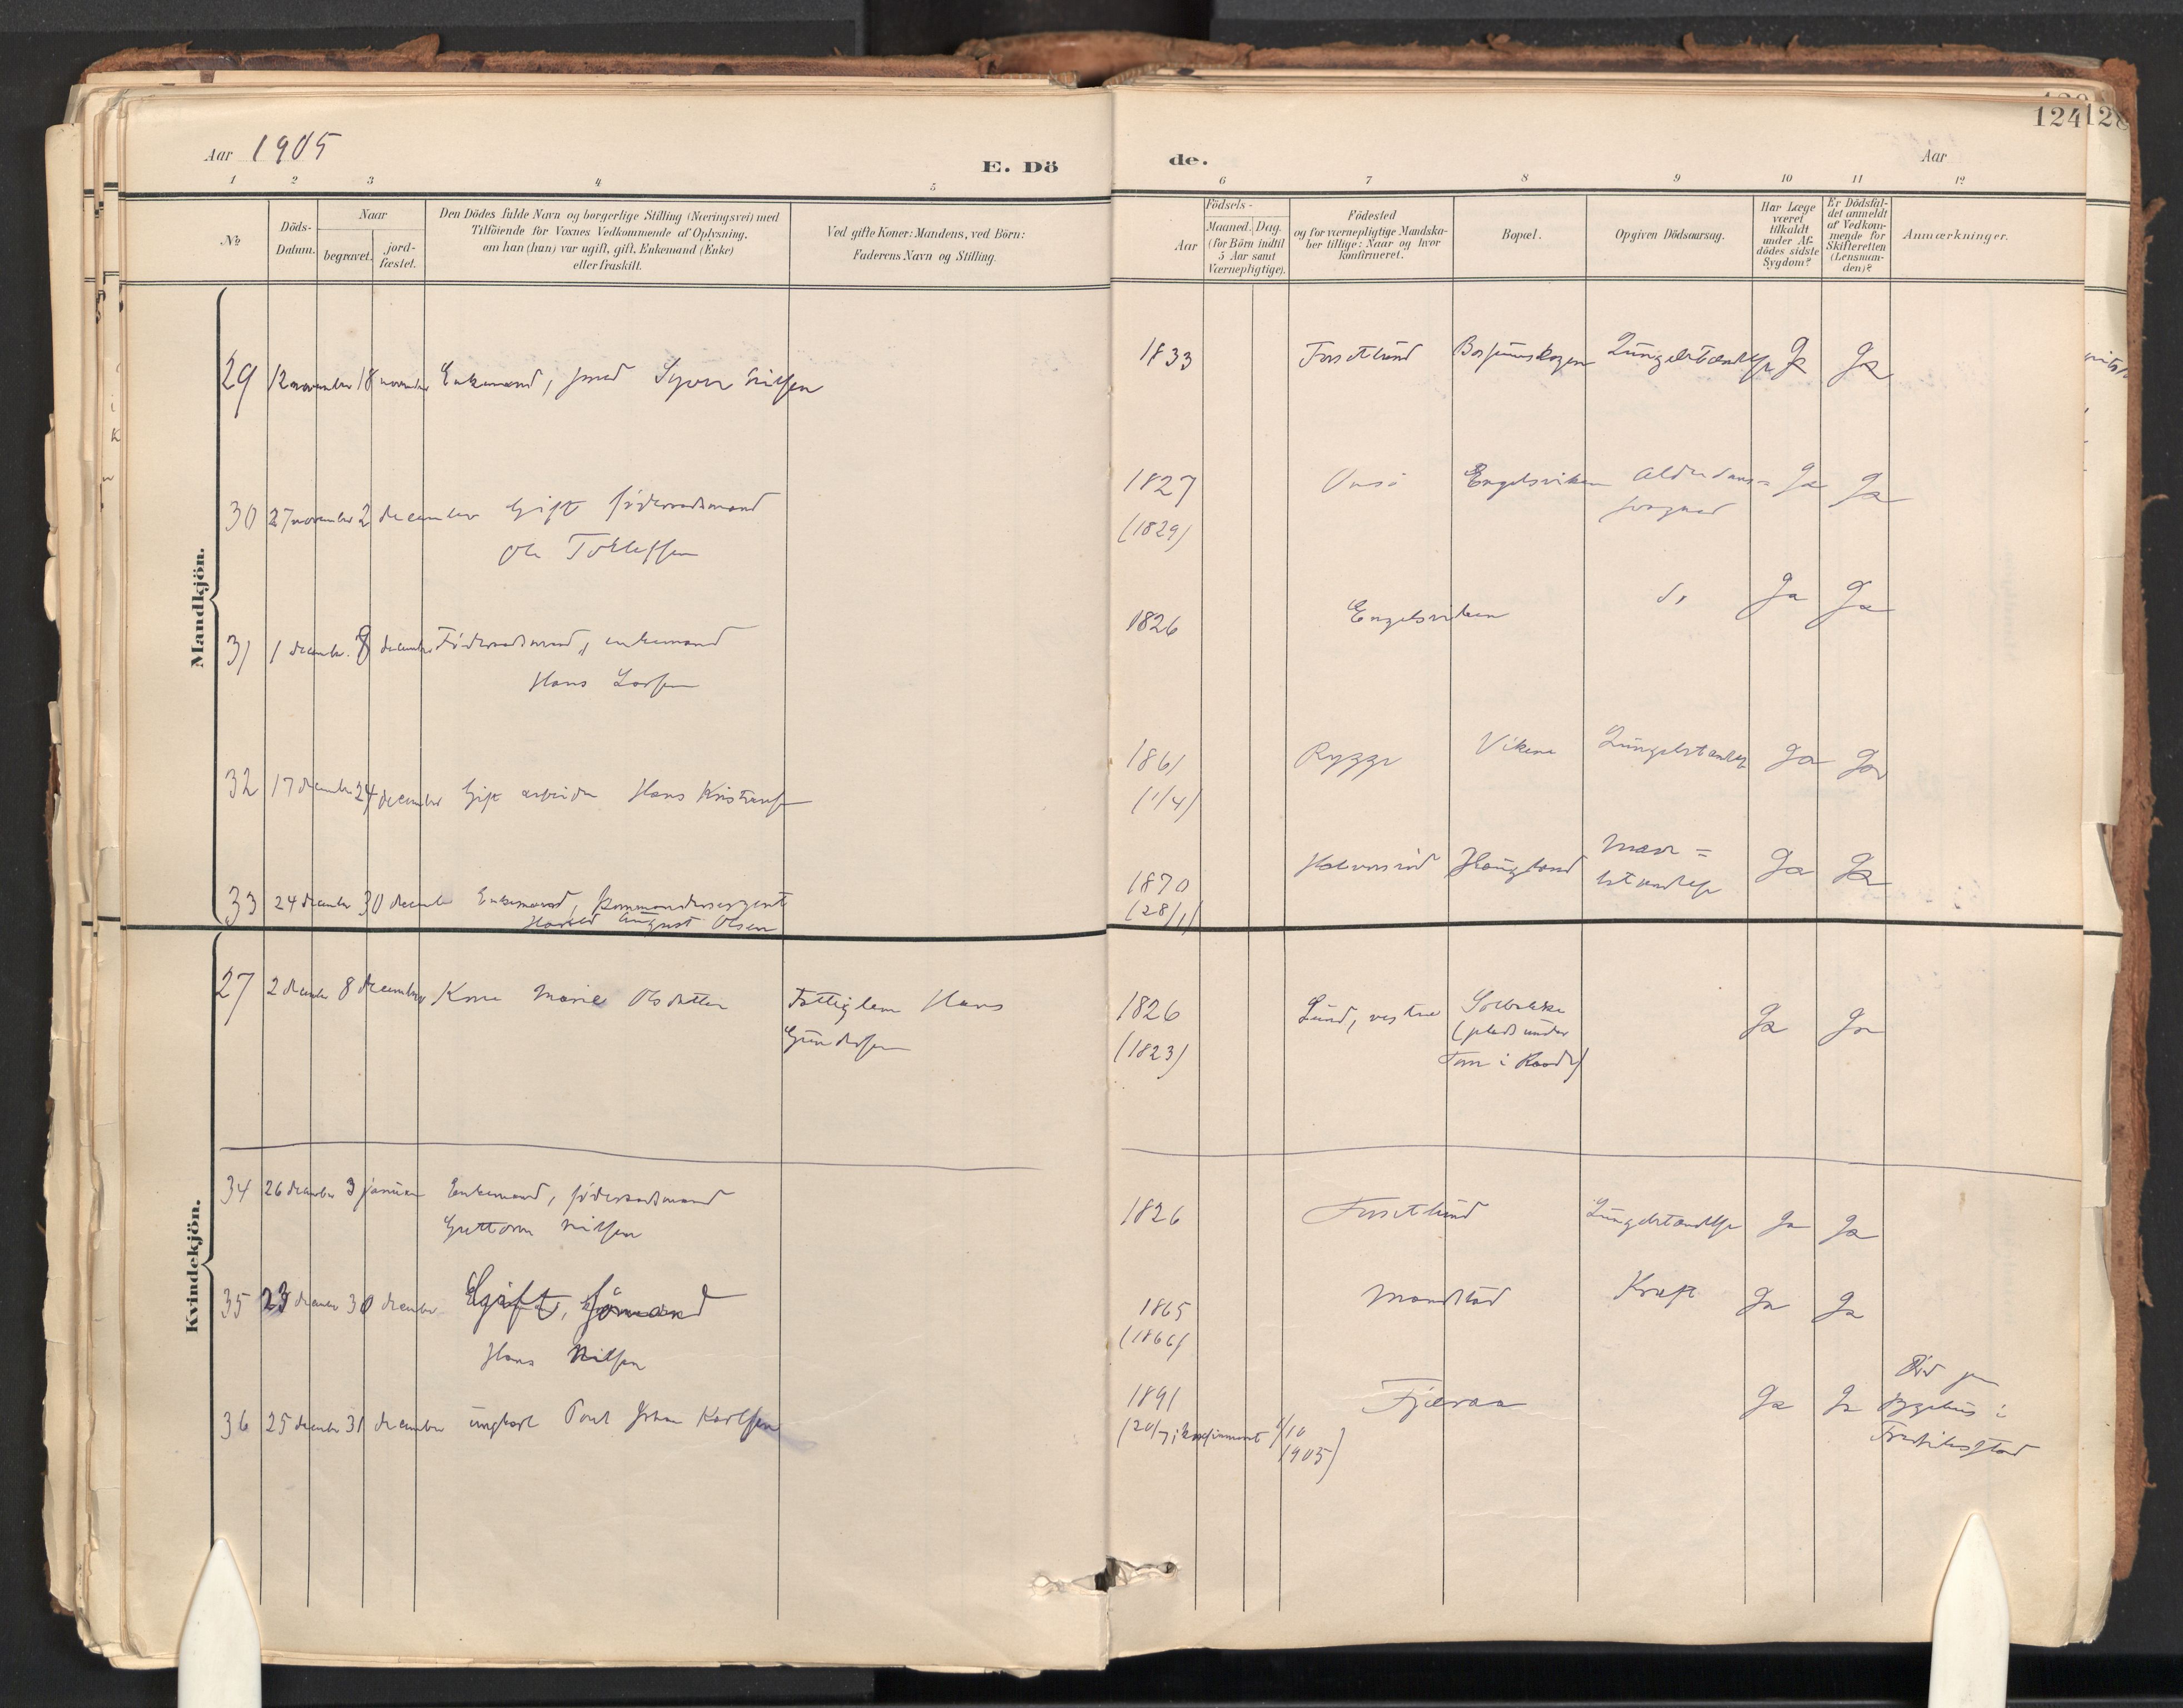 124
128
Aar 1905
E. Döde.
Aar
1 2 3 4 5 6 7 8 9 10 11 12
№
Döds-
Datum.
Naar
begravet.
jord-
fæstet.
Den Dödes fulde Navn og borgerlige Stilling (Næringsvei) med
Tilföiende for Voxnes Vedkommende af Oplysning,
om han (hun) var ugift, gift, Enkemand (Enke)
eller fraskilt.
Ved gifte Koner: Mandens, ved Börn:
Faderens Navn og Stilling.
Aar
Födsels-
Maaned. Dag.
(for Börn indtil
5 Aar samt
Værnepligtige).
Födested
og for værnepligtige Mandska-
ber tillige: Naar og hvor
konfirmeret.
Bopæl.
Opgiven Dödsaarsag.
Har Læge
været
tilkaldt
under Af-
dödes sidste
Sygdom?
Er Dödsfal-
det anmeldt
af Vedkom-
mende for
Skifteretten
(Lensman-
den)?
Anmærkninger.
Mandkjön.
29 12 november 18 november Enkemand, Syver Nilsen 1833 Lungebetændelse Ja Ja
30 27 november 2 december Gift föderaadsmand 1827 Onsö Engelsviken Alderdoms= Ja Ja
Ole (1829)
31 1 december. 8 december Föderaadsmand, enkemand 1826 Engelsviken do Ja Ja
Hans Larsen
32 17 december 24 december Gift arbeider Hans Kristiansen 1861 Rygge Vikene Lungebetændelse Ja Ja
(1/4)
33 24 december 30 december Enkemand, kommandersergent 1870 Halvorsröd Haugland Mave= Ja Ja
Harald August Olsen (28/1) betændelse
Kvindekjön.
27 2 december 8 december Kone Marie Olsdatter Fattiglem Hans 1826 Lund, vestre Solbakke Ja Ja
Gundersen (1823) (plads under
Tom i Raade)
34 26 december 3 januar Enkemand, föderaadsmand 1826 Lungebetændelse Ja Ja
Guttorm Nilsen
35 23 december 30 december Gift, sömand 1865 Kræft Ja Ja
Hans Nilsen (1866)
36 25 december 31 december ungkarl Poul Johan Karlsen 1891 Fjæraa Ja Ja Död paa
(20/7; konfirmeret 1/10 sygehus i
1905) Fredriksstad